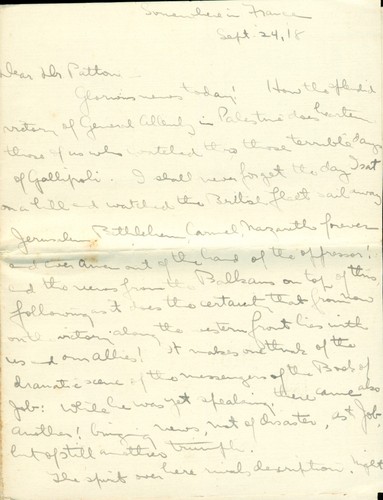 Somewhere in France
Sept. 24, 18
Dear Dr Patton
Glorious news today! How the splendid
victory of General Allenby in Palestine does hearten
those of us who watched thro those terrible days
of Gallipoli. I shall never forget the day I sat
on a hill and watched the British fleet sail away
Jerusalem, Bethlehem, Carmel, Nazareth forever
and ever Amen out of the hand of the oppressor!
and the news from the Balkans on top of this
following as it does the certainty that from now
on the victory along the western front lies with
us and our allies! It makes one think of the
dramatic scene of the messengers of the Book of
Job: While he was yet speaking there came also
another! bringing news, not of disaster, as to Job,
but of still another triumph.
The spirit over here rivals description.